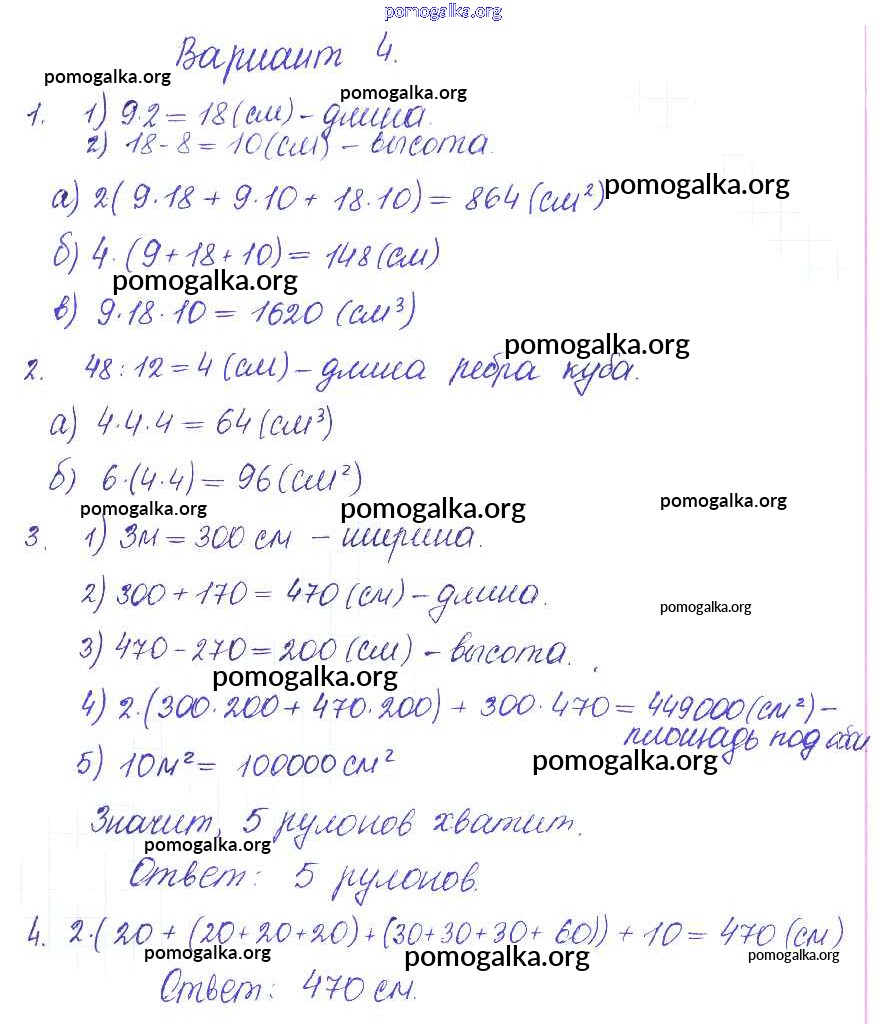 pomogalka.org
Вариант 4.
pomogalka.org
pomogalka.org
1. 1) 9·2 = 18 (см) – длина.
2) 18 - 8 = 10 (см) – высота.
а) 2(9·18 + 9·10 + 18·10) = 864 (см²)
pomogalka.org
б) 4·(9 + 18 + 10) = 148 (см)
pomogalka.org
в) 9·18·10 = 1620 (см³)
pomogalka.org
2. 48 : 12 = 4 (см) – длина ребра куба.
а) 4·4·4 = 64 (см³)
б) 6·(4·4) = 96 (см²)
pomogalka.org pomogalka.org pomogalka.org
3. 1) 3м = 300 см – ширина.
2) 300 + 170 = 470 (см) – длина.
pomogalka.org
3) 470 - 270 = 200 (см) – высота.
pomogalka.org
4) 2·(300·200 + 470·200) + 300·470 = 449000 (см²) –
площадь под
5) 10м² = 100000 см²
pomogalka.org
Значит, 5 рулонов хватит.
pomogalka.org
Ответ: 5 рулонов.
4. 2·(20 + (20+20+20) + (30+30+30+60)) + 10 = 470 (см)
pomogalka.org pomogalka.org pomogalka.org
Ответ: 470 см.